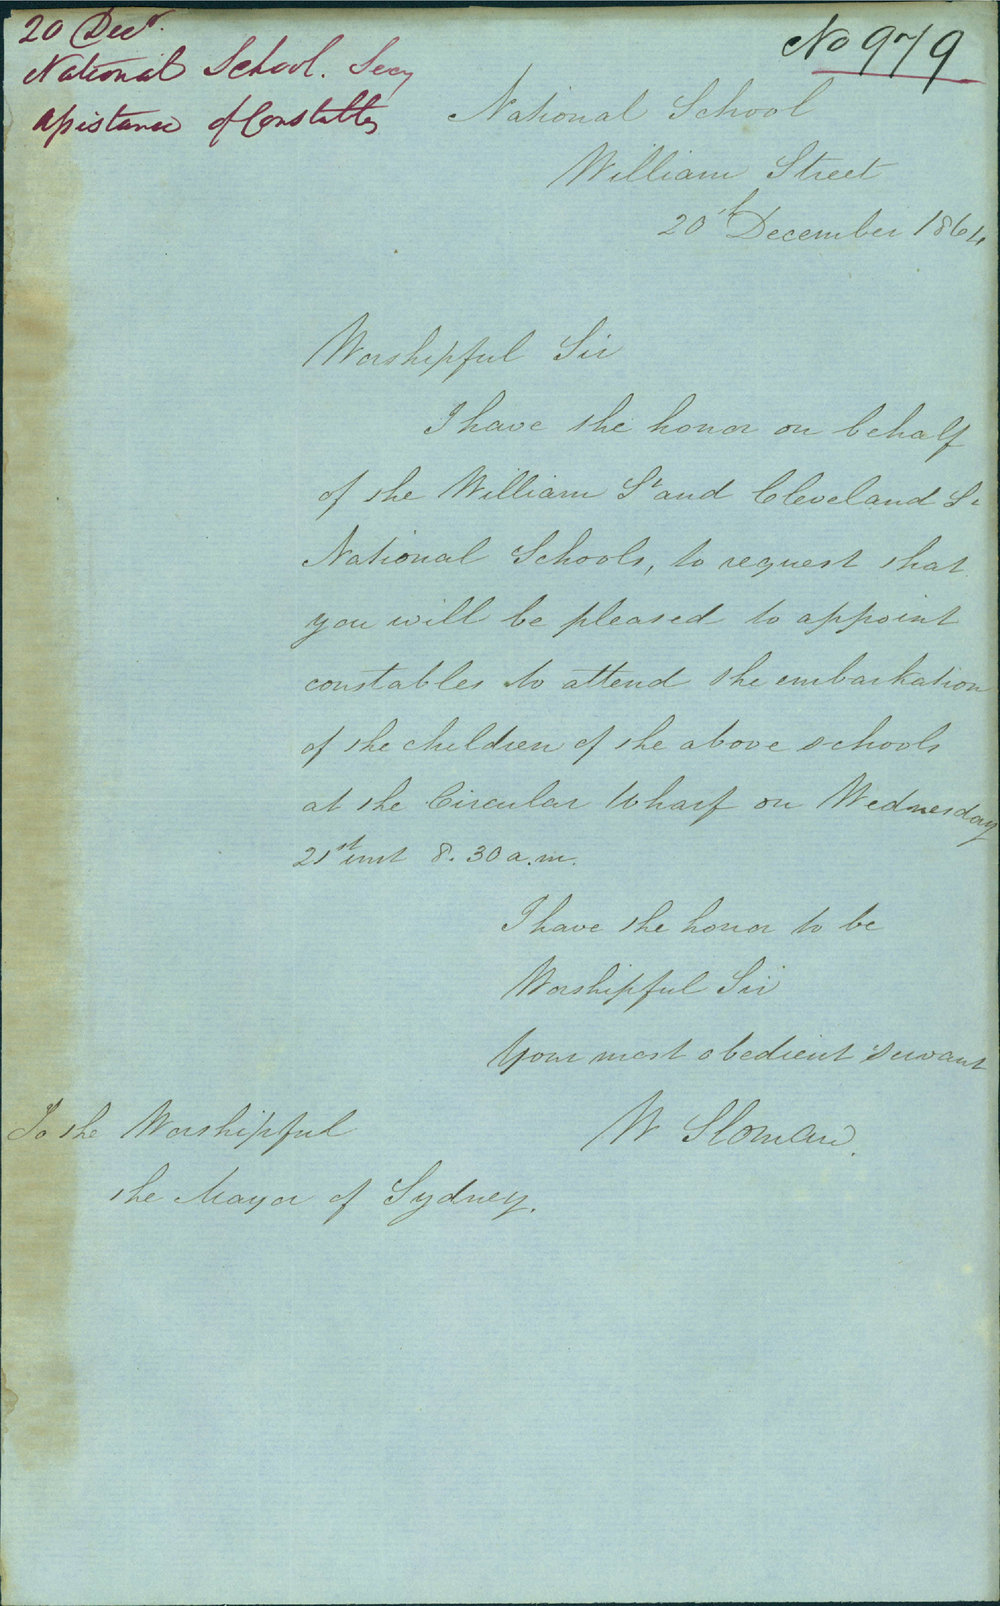 20 Decr.
National School. Secy
Assistance of Constables
No 979
National School
William Street
20th December 1864
Worshipful Sir
I have the honor on behalf
of the William St and Cleveland St
National Schools, to request that
you will be pleased to appoint
constables to attend the embarkation
of the children of the above schools
at the Circular Wharf on Wednesday
21st inst 8.30 a.m.
I have the honor to be
Worshipful Sir
Your most obedient servant
W Sloman.
To the Worshipful
the Mayor of Sydney.